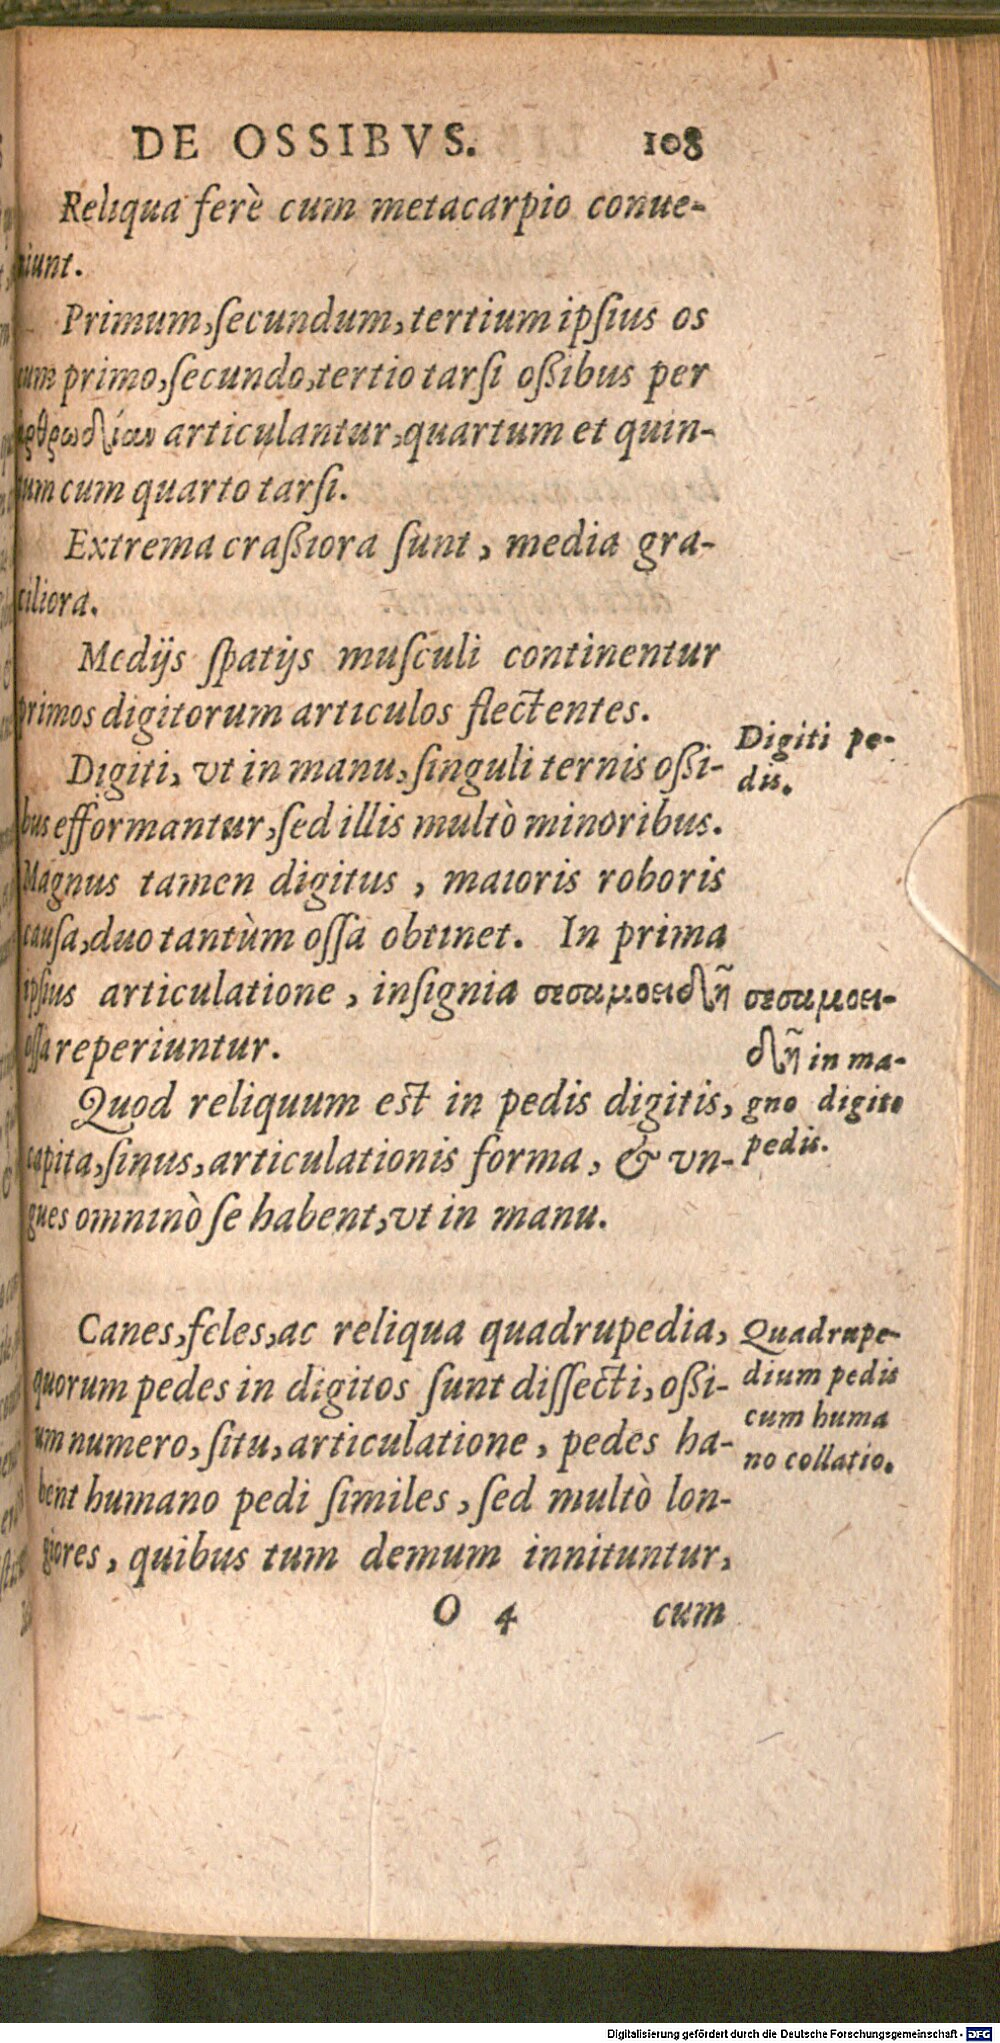 DE OSSIBVS. 108
Reliqua ferè cum metacarpio conue-
niunt.
Primum, ſecundum, tertium ipſius os
cum primo, ſecundo, tertio tarſi oßibus per
ἀρθρωδίαν articulantur, quartum et quin-
tum cum quarto tarſi.
Extrema craßiora ſunt, media gra-
ciliora.
Medijs ſpatijs muſculi continentur
primos digitorum articulos flectentes.
Digiti pe-
dis.
Digiti, vt in manu, ſinguli ternis oßi-
bus efformantur, ſed illis multò minoribus.
Magnus tamen digitus, maioris roboris
cauſa, duo tantùm oſſa obtinet. In prima
ipſius articulatione, inſignia σεσαμοειδῆ
oſſa reperiuntur.
σεσαμοει-
δῆ in ma-
gno digito
pedis.
Quod reliquum eſt in pedis digitis,
capita, ſinus, articulationis forma, & vn-
gues omninò ſe habent, vt in manu.
Canes, feles, ac reliqua quadrupedia,
quorum pedes in digitos ſunt diſſecti, oßi-
um numero, ſitu, articulatione, pedes ha-
bent humano pedi ſimiles, ſed multò lon-
giores, quibus tum demum innituntur,
Quadrupe-
dium pedis
cum huma
no collatio.
O 4 cum
Digitalisierung gefördert durch die Deutsche Forschungsgemeinschaft - DFG